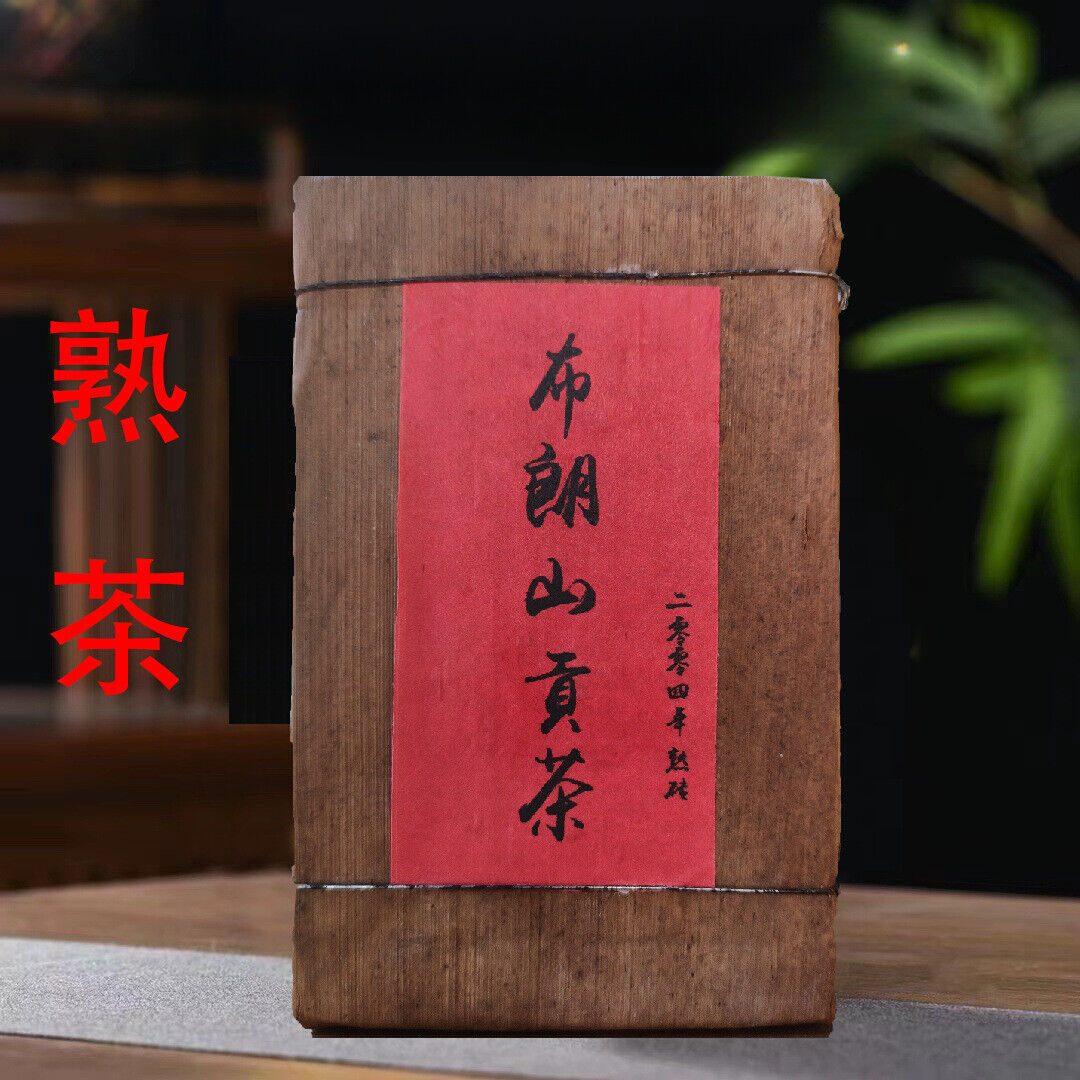 熟茶
布朗山贡茶
二零零四年熟砖